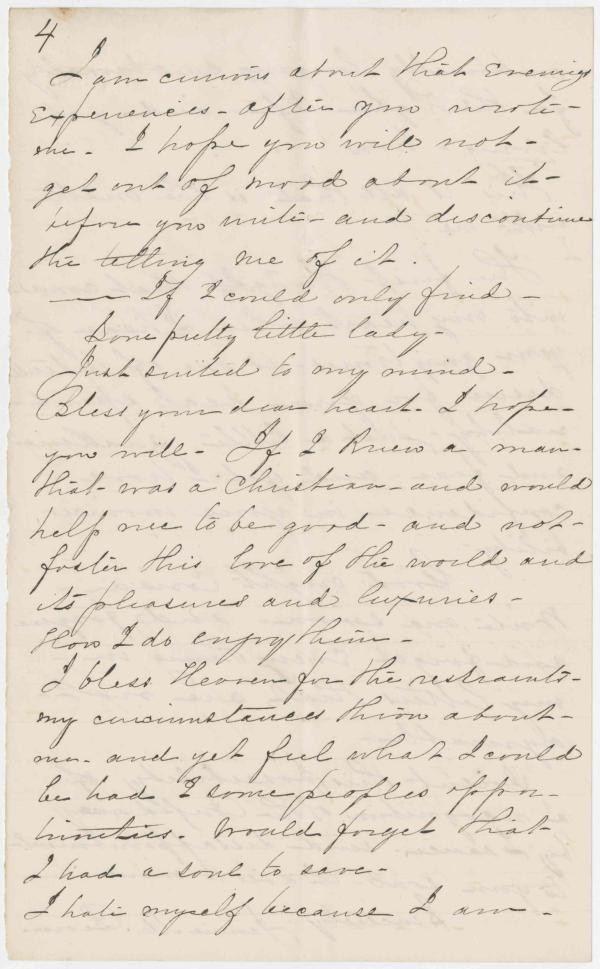 4
I am curious about that evenings
experiences - after you wrote -
me - I hope you will not -
get out of mood about it -
before you write - and discontinue
the telling me of it.
— If I could only find -
Some pretty little lady -
Just suited to my mind -
Bless your dear heart - I hope -
you will - If I knew a man -
that was a Christian - and would
help me to be good - and not -
foster this love of the world and
its pleasures and luxuries -
How I do enjoy them -
I bless Heaven for the restraints -
my circumstances throw about -
me - and yet feel what I could
be had I some peoples oppor-
tunities. Would forget that
I had a soul to save -
I hate myself because I am -